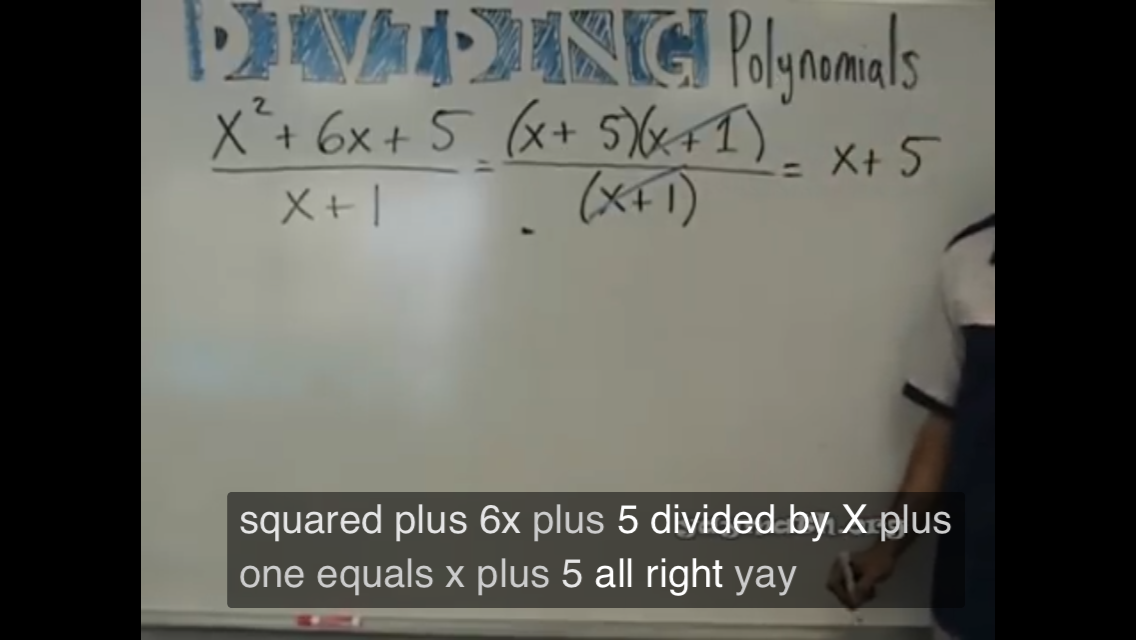 DIVIDING Polynomials
x² + 6x + 5 / x + 1 = (x + 5)(x + 1) / (x + 1) = x + 5
squared plus 6x plus 5 divided by X plus
one equals x plus 5 all right yay